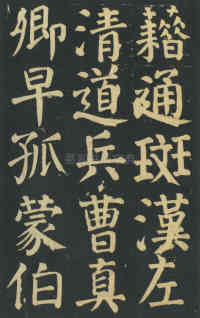 藉通斑漢左
清道兵曹真
卿早孤蒙伯